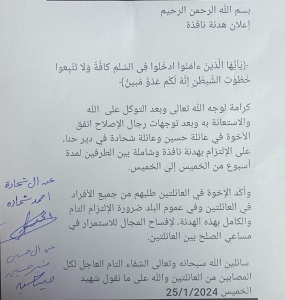 بسم الله الرحمن الرحيم
إعلان هدنة نافذة
﴿يَٰٓأَيُّهَا ٱلَّذِينَ ءَامَنُوا۟ ٱدْخُلُوا۟ فِى ٱلسِّلْمِ كَآفَّةً وَلَا تَتَّبِعُوا۟
خُطُوَٰتِ ٱلشَّيْطَٰنِ إِنَّهُۥ لَكُمْ عَدُوٌّ مُّبِينٌ﴾
كرامة لوجه الله تعالى وبعد التوكل على الله
والاستعانة به وبعد توجهات رجال الإصلاح اتفق
الأخوة في عائلة حسين وعائلة شحادة في دير حنا،
على الإلتزام بهدنة نافذة وشاملة بين الطرفين لمدة
أسبوع من الخميس إلى الخميس.
وأكد الإخوة في العائلتين طلبهم من جميع الأفراد
في العائلتين وفي عموم البلد ضرورة الإلتزام التام
والكامل بهذه الهدنة، لإفساح المجال للاستمرار في
مساعي الصلح بين العائلتين.
سائلين الله سبحانه وتعالى الشفاء التام العاجل لكل
المصابين من العائلتين والله على ما نقول شهيد
الخميس 25/1/2024
عن ال شحادة
احمد شحاده
عن ال حسين
حسين